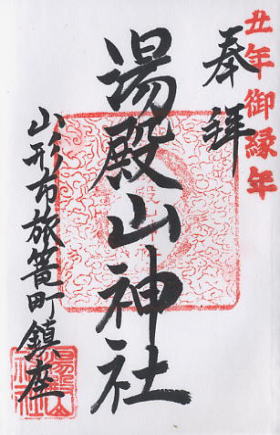 丑午御縁年
奉拝
湯殿山神社
山形市旅篭町鎮座